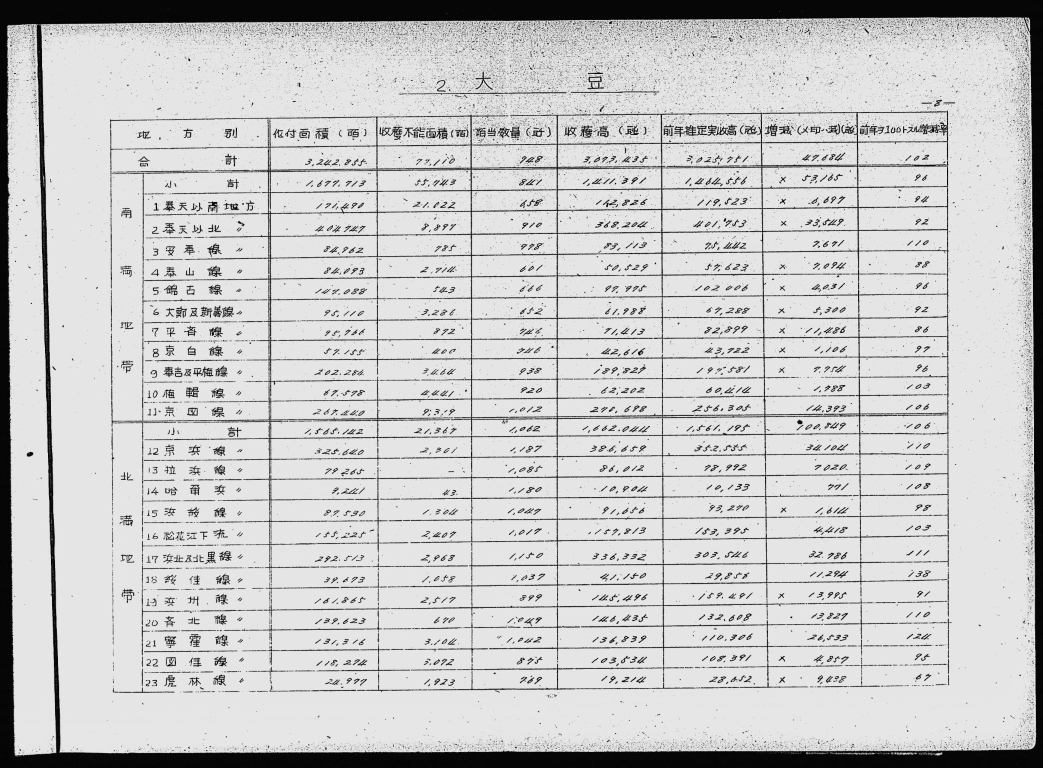 2. 大豆
—8—
地方別 作付面積(陌) 收穫不能面積(陌) 陌当数量(瓩) 收穫高(瓲) 前年推定実收高(瓲) 増減(×印ハ減)(瓲) 前年ヲ100トスル増減率
合計 3,242,855 77,110 948 3,073,435 3,025,751 47,684 102
南満地帶
小計 1,677,713 55,743 841 1,411,391 1,464,556 × 53,165 96
1 奉天以南地方 171,490 21,022 658 119,523 × 6,697 94
2 奉天以北 〃 404,747 8,897 910 368,204 401,753 × 33,549 92
3 安奉線 〃 84,962 785 978 83,113 75,442 7,671 110
4 奉山線 〃 84,093 2,714 601 50,529 57,623 × 7,094 88
5 錦古線 〃 147,088 543 666 97,975 102,006 × 4,031 96
6 大鄭及新義線 〃 95,110 3,286 652 61,988 67,288 × 5,300 92
7 平斉線 〃 95,766 872 746 71,413 82,899 × 11,486 86
8 京白線 〃 57,155 400 746 42,616 43,722 × 1,106 97
9 奉吉及平梅線 〃 202,284 3,464 938 189,827 197,581 × 7,754 96
10 拖輯線 〃 67,578 4,441 920 62,202 60,414 1,788 103
11 京図線 〃 267,440 9,319 1,012 270,698 256,305 14,393 106
北満地帶
小計 1,565,142 21,367 1,062 1,662,044 1,561,195 100,849 106
12 京浜線 〃 325,640 2,301 1,187 386,659 352,555 34,104 110
13 拉浜線 〃 79,265 — 1,085 86,012 78,992 7,020 109
14 哈爾浜 〃 9,241 43 1,180 10,904 10,133 771 108
15 浜綏線 〃 87,530 1,304 1,047 91,656 93,270 × 1,614 98
16 松花江下流 〃 155,225 2,407 1,017 157,813 153,395 4,418 103
17 浜北及北黒線 〃 292,513 2,968 1,150 336,332 303,546 32,786 111
18 綏佳線 〃 39,673 1,058 1,037 41,150 29,856 11,294 138
19 浜州線 〃 161,865 2,517 899 145,496 159,491 × 13,995 91
20 斉北線 〃 139,623 670 1,049 146,435 132,608 13,827 110
21 寧霍線 〃 131,316 3,104 1,042 136,839 110,306 26,533 124
22 図佳線 〃 118,274 3,072 875 103,534 108,391 × 4,857 95
23 虎林線 〃 24,977 1,923 769 19,214 28,652 × 9,438 67